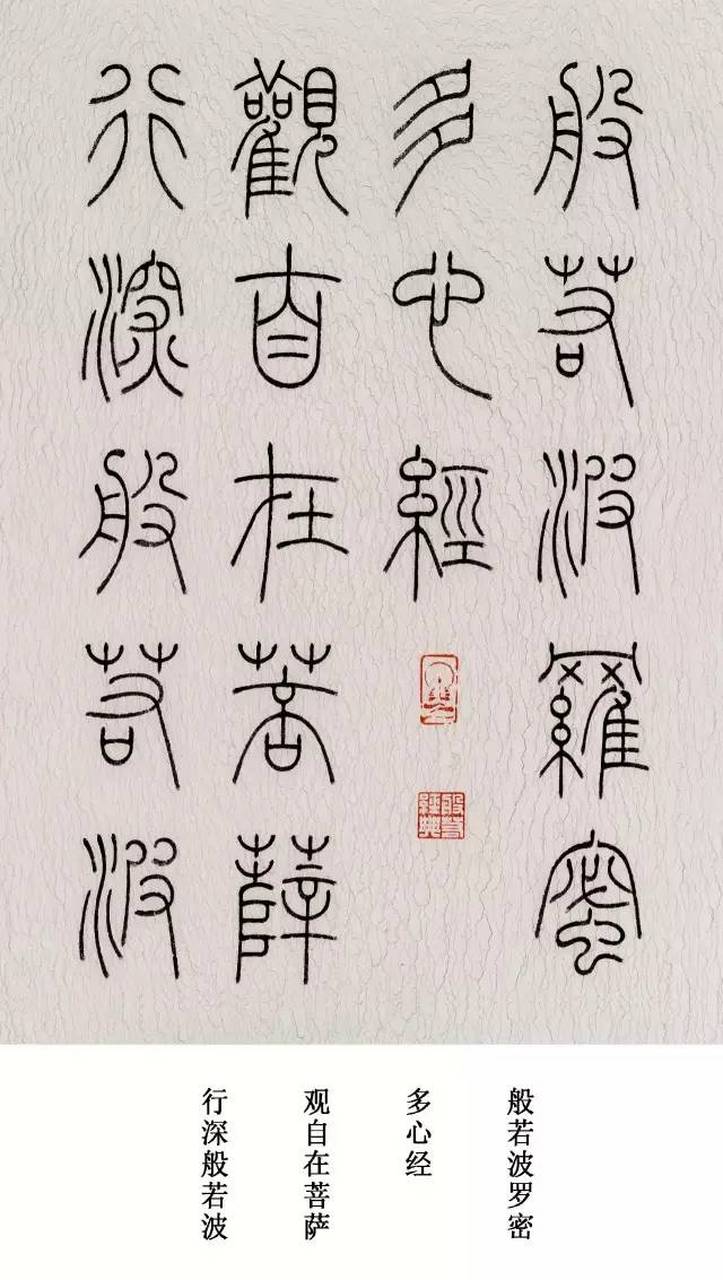 般若波羅蜜
多心經
般若經典
觀自在菩薩
行深般若波
般若波罗密
多心经
观自在菩萨
行深般若波